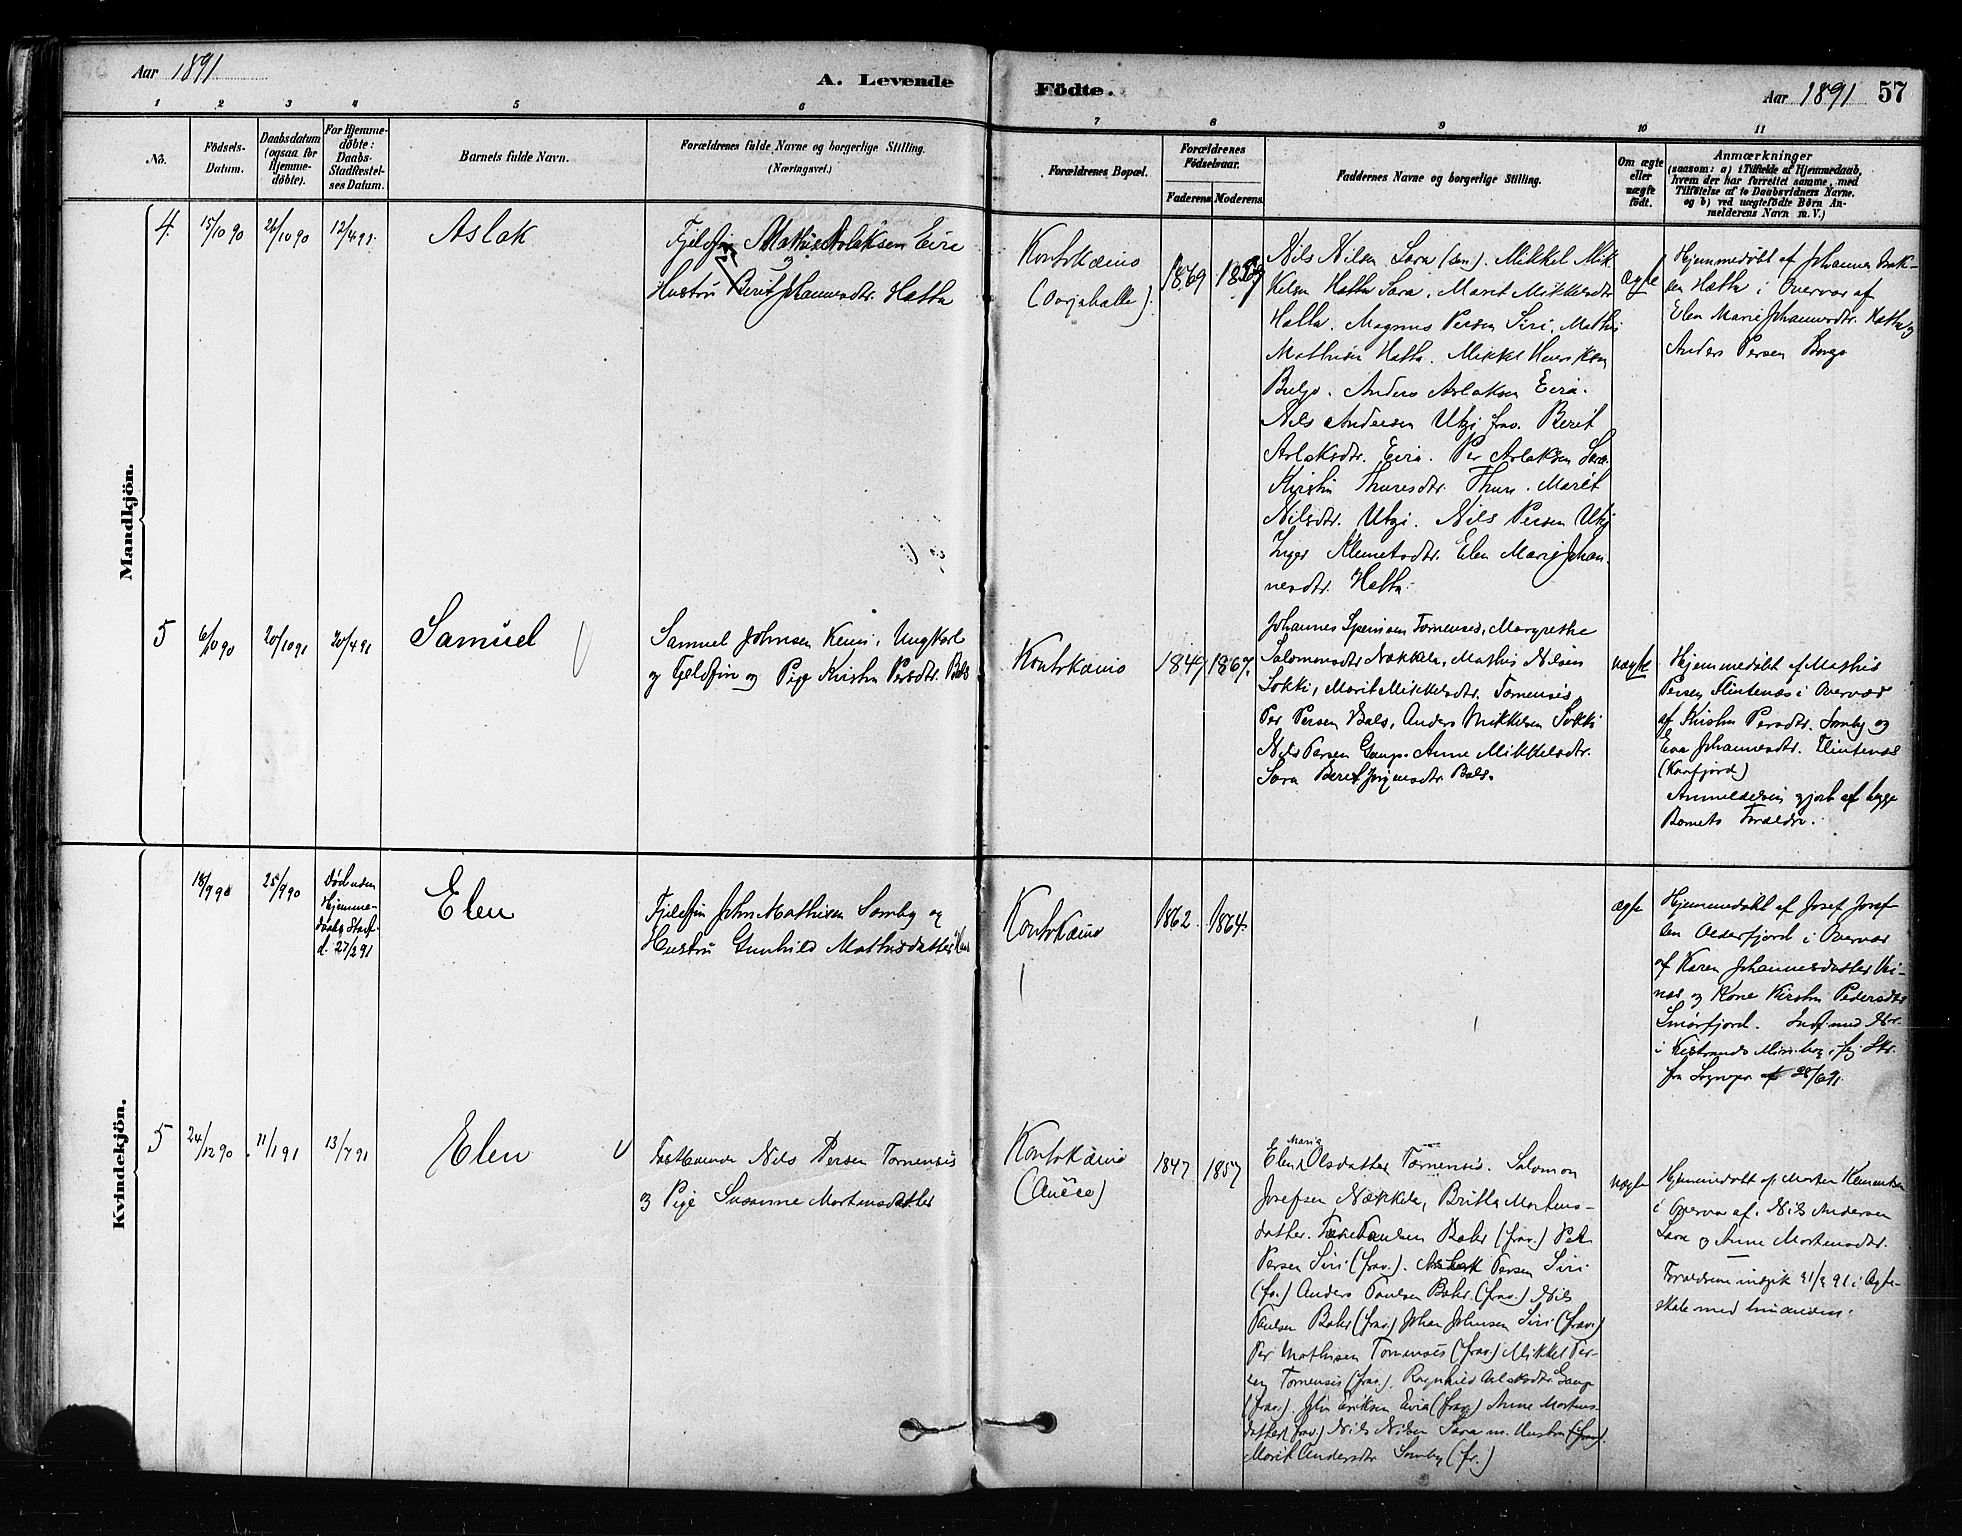 Aar 1891
A. Levende
Födte.
Aar 1891 57
1 2 3 4 5 6 7 8 9 10 11
No.
Födsels-
Datum.
Daabsdatum
(ogsaa for
Hjemme-
döbte).
For Hjemme-
døbte:
Daabs-
Stadfæstel-
ses Datum.
Barnets fulde Navn.
Forældrenes fulde Navne og borgerlige Stilling.
(Næringsvei.)
Forældrenes Bopæl.
Forældrenes
Födselsaar.
Faderens Moderens
Faddernes Navne og borgerlige Stilling.
Om ægte
eller
uægte
födt.
Anmærkninger
(saasom: a) i Tilfælde af Hjemmedaab,
hvem der har forrettet samme, med
Tilföielse af to Daabsvidners Navne.
og b) ved uægtefödte Börn An-
melderens Navn m. V.)
Mandkjön.
4. 15/10 90 26/10 90 12/4 91.
Aslak
Fjeldfin Mathis Aslaksen Eira
og
Hustru Berit Johannesdtr. Hætta
Koutokæino
1869
Nils Nilsen Sara (sen). Mikkel Mik
kelsen Hætta Sara, Marit Mikkelsdtr
Hætta. Magnus Persen Siri, Mathis
Mathisen Hætta. Mikkel Henriksen
Buljo. Anders Aslaksen Eira.
Nils Andersen Utzi frav. Berit
Aslaksdtr. Eira. Per Aslaksen Sara.
Kirstin Thuresdtr. Thuri. Marit
Nilsdtr. Utzi. Nils Persen Utzi
Inger Klemetsdtr. Elen Marie Johan
nesdtr. Hætta.
ægte
Hjemmedøbt af Johannes Isak-
sen Hætta i Overvær af
Elen Marie Johannesdtr. Hætta og
Anders Persen Bongo
5 6/10 90 20/10 91 20/4 91
Samuel
Samuel Johnsen Kemi, Ungkarl
og Fjeldfin og Pige Kirstin Persdtr. Bals
Koutokæino
1849 1867.
Johannes Isaksen Tornensis, Margrethe
Salomonsdtr Nækkela, Mathis Nilsen
Sokki, Marit Mikkelsdtr. Tornensis
Per Persen Bals, Anders Mikkelsen Sokki
Nils Persen Gaup. Anne Mikkelsdtr.
Sara Berit Jørgensdtr. Bals.
uægte
Hjemmedøbt af Mathis
Persen Flintenæs i Overvær
af Kirstin Persdtr. Somby og
Eva Johannesdtr. Flintenæs
(Kaafjord)
Anmeldelsen gjort af begge
Barnets Forældre.
Kvindekjön.
18/9 90 25/9 90
Død uden
Hjemme-
daabs Stadf.
d. 27/2 91
Elen
Fjeldfin John Mathisen Somby og
Hustru Gunhild Mathisdatter
Koutokæino
1862 1864.
ægte
Hjemmedøbt af Josef Josef
sen Olderfjord i Overvær
af Karen Johannesdatter Vei-
næs og Kone Kirsten Pedersdtr
Smørfjord. Indf. med Nr.
i Kistrands Min. bog, flg. Skr.
fra Sognepr. af 28/6 91.
5 24/12 90 11/1 91 13/7 91
Elen
Fastboende Nils Persen Tornensis
og Pige Susanne Mortensdatter
Koutokæino
1847 1857
Elen Maria Olsdatter Tornensis. Salomon
Josefsen Nækkela, Britta Mortens-
datter. Poulsen Bahr (frav.) Per
Persen Siri (frav.). Aslak Persen Siri
(fr.) Anders Paulsen Bahr (frav.) Nils
Paulsen Bahr (frav.) Johan Johnsen Siri (frav.)
Per Mathisen Tornensis (frav.) Mikkel Per-
sen Tornensis (frav.), Ragnhild Aslaksdtr Gaup
(frav.). John Eriksen Eira (frav.) Anne Mortens-
datter (frav.) Nils Nilsen Sara m. Hustru (frav.)
Marit Andersdtr Somby (fr.)
uægte
Hjemmedøbt af Morten Klemetsen
i Overvær af Nils Andersen
Sara og Anne Mortensdtr.
Forældrene indgik i Ægte-
skab med hinanden.